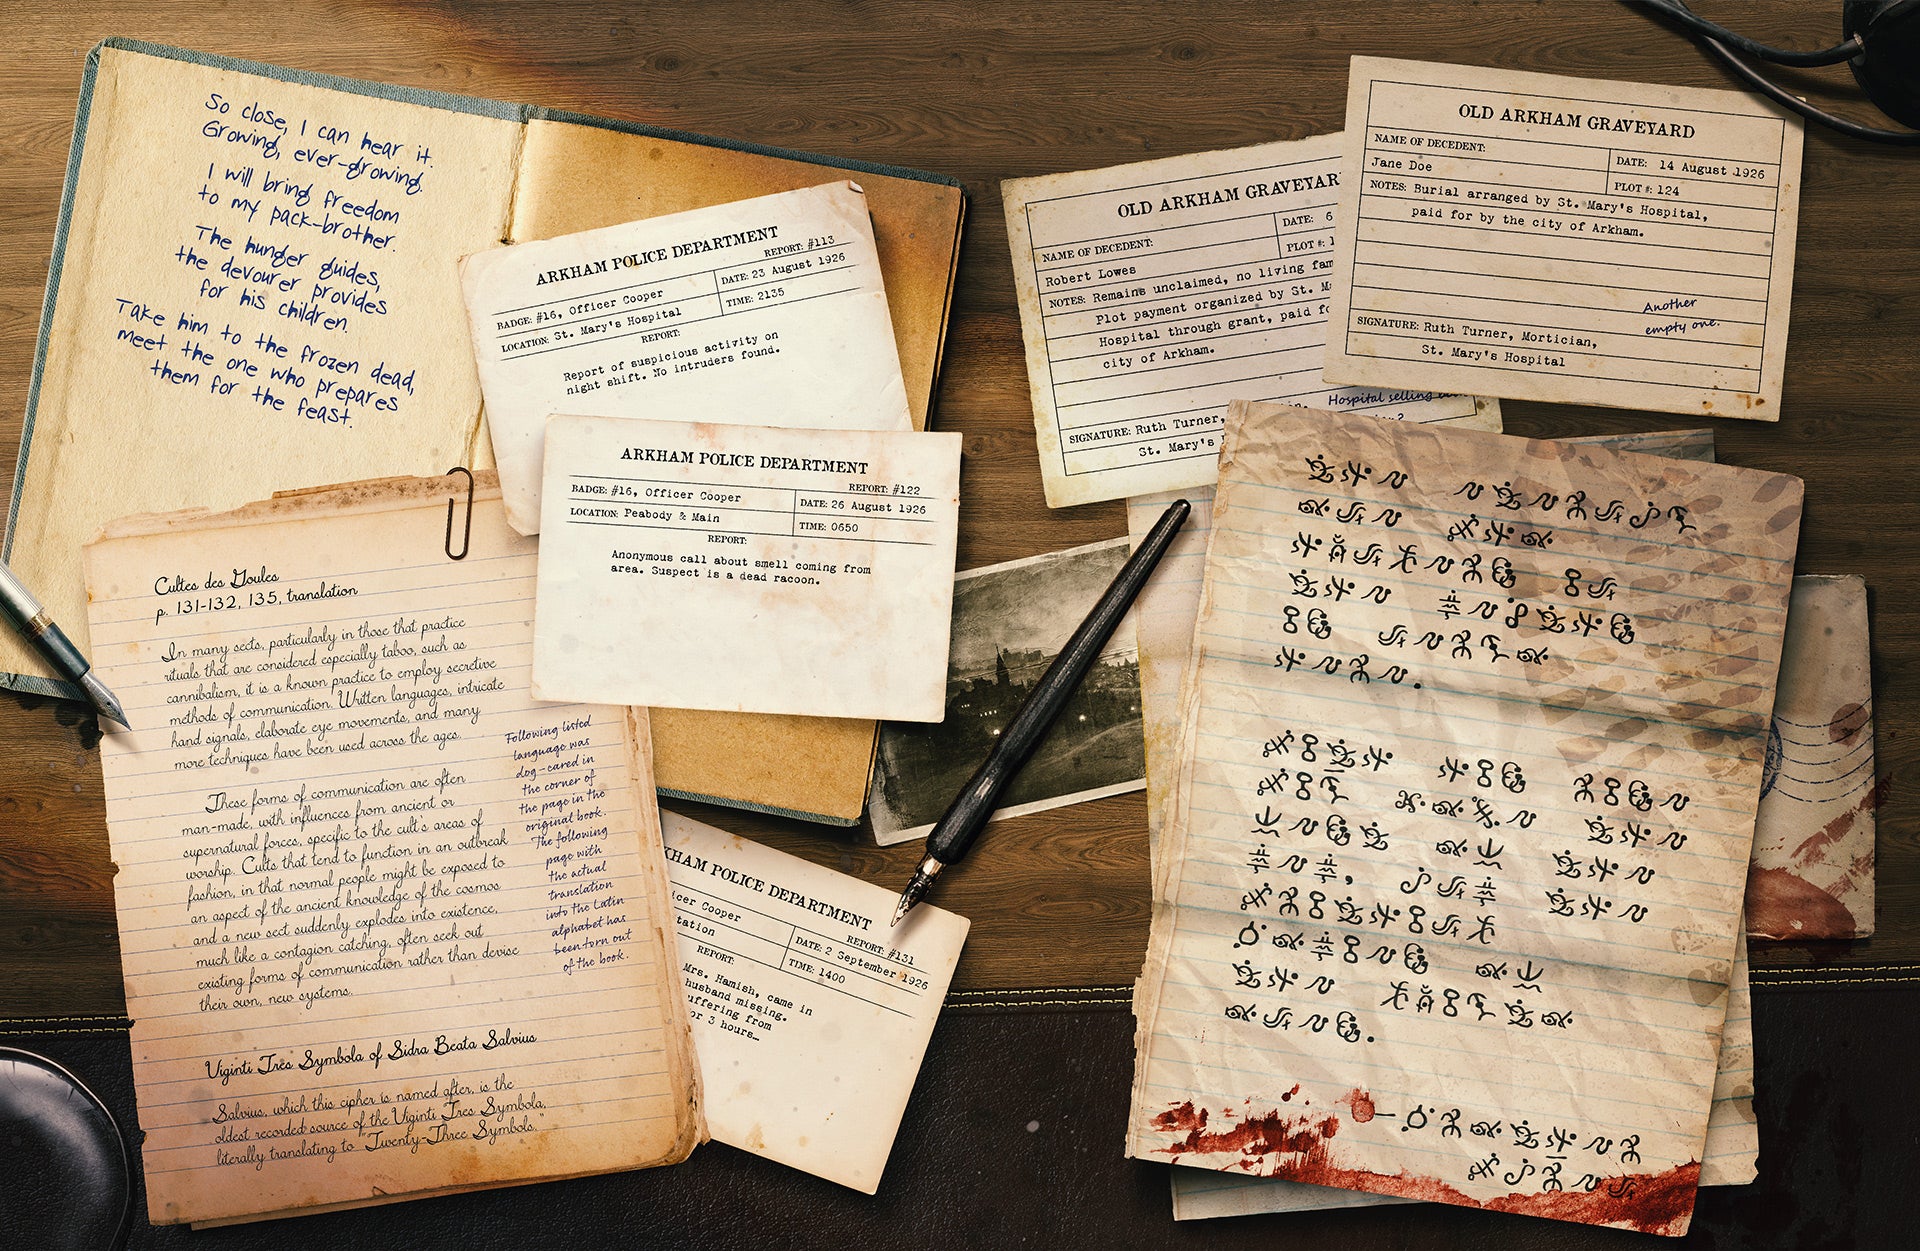 So close, I can hear it.
Growing, ever-growing.
I will bring freedom
to my pack-brother.
The hunger guides,
the devourer provides
for his children.
Take him to the frozen dead,
meet the one who prepares
them for the feast.
ARKHAM POLICE DEPARTMENT
REPORT: #113
BADGE: #16, Officer Cooper
DATE: 23 August 1926
LOCATION: St. Mary's Hospital
TIME: 2135
REPORT:
Report of suspicious activity on
night shift. No intruders found.
ARKHAM POLICE DEPARTMENT
REPORT: #122
BADGE: #16, Officer Cooper
DATE: 26 August 1926
LOCATION: Peabody & Main
TIME: 0650
REPORT:
Anonymous call about smell coming from
area. Suspect is a dead racoon.
KHAM POLICE DEPARTMENT
REPORT: #131
icer Cooper
DATE: 2 September 1926
tation
TIME: 1400
REPORT:
Mrs. Hamish, came in
husband missing.
uffering from
or 3 hours…
Cultes des Goules
p. 131-132, 135, translation
In many sects, particularly in those that practice
rituals that are considered especially taboo, such as
cannibalism, it is a known practice to employ secretive
methods of communication. Written languages, intricate
hand signals, elaborate eye movements, and many
more techniques have been used across the ages.
These forms of communication are often
man-made, with influences from ancient or
supernatural forces, specific to the cult's areas of
worship. Cults that tend to function in an outbreak
fashion, in that normal people might be exposed to
an aspect of the ancient knowledge of the cosmos
and a new sect suddenly explodes into existence,
much like a contagion catching, often seek out
existing forms of communication rather than devise
their own, new systems.
Following listed
language was
dog-eared in
the corner of
the page in the
original book.
The following
page with
the actual
translation
into the Latin
alphabet has
been torn out
of the book.
Viginti Tres Symbola of Sidra Beata Salvius
Salvius, which this cipher is named after, is the
oldest recorded source of the Viginti Tres Symbola,
literally translating to "Twenty-Three Symbols."
OLD ARKHAM GRAVEYAR
NAME OF DECEDENT:
DATE: 6
Robert Lowes
PLOT #: 1
NOTES: Remains unclaimed, no living fam
Plot payment organized by St. M
Hospital through grant, paid fo
city of Arkham.
Hospital selling
SIGNATURE: Ruth Turner,
St. Mary's
OLD ARKHAM GRAVEYARD
NAME OF DECEDENT:
DATE: 14 August 1926
Jane Doe
PLOT #: 124
NOTES: Burial arranged by St. Mary's Hospital,
paid for by the city of Arkham.
Another
empty one.
SIGNATURE: Ruth Turner, Mortician,
St. Mary's Hospital